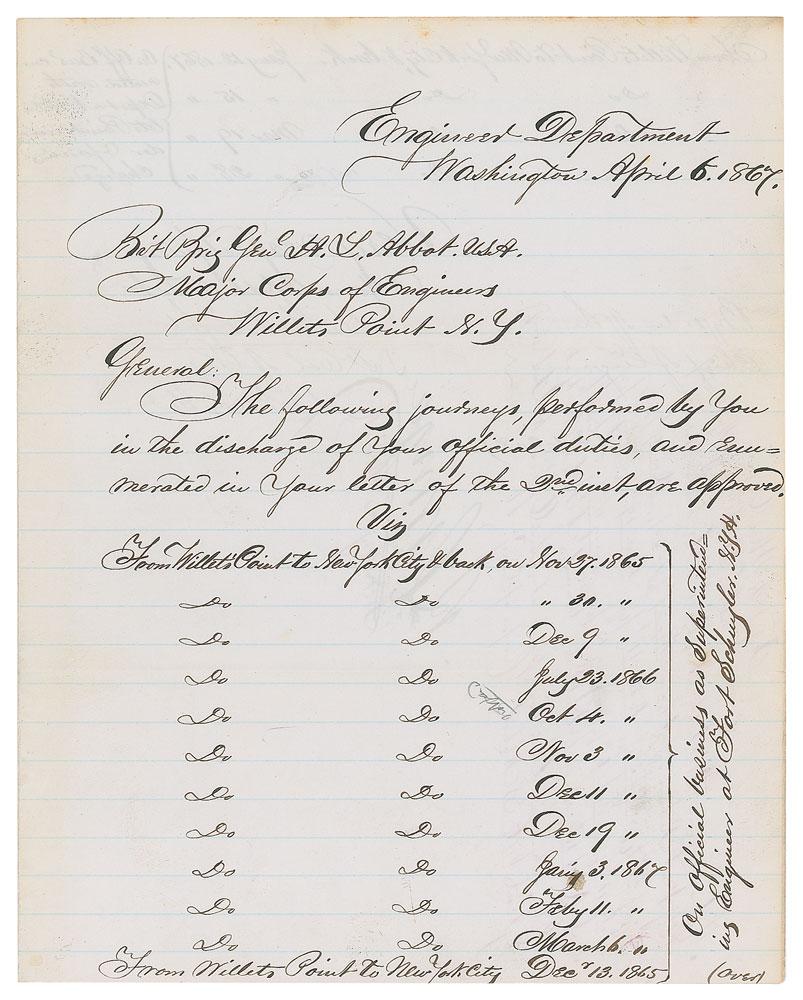 Engineer Department
Washington April 6. 1867.
Bvt Brig Genl H. L. Abbot. U.S.A.
Major Corps of Engineers
Willets Point N. Y.
General:
The following journeys, performed by you
in the discharge of your official duties, and enu=
merated in your letter of the 2nd inst, are approved.
Viz
From Willets Point to New York City & back, on Nov 27. 1865
Do Do " 30. "
Do Do Dec 9 "
Do Do July 23. 1866
Do Do Oct 4. "
Do Do Nov 3 "
Do Do Dec 11 "
Do Do Dec 19 "
Do Do Jany 3. 1867
Do Do Feby 11. "
Do Do March 6. "
From Willets Point to New York City Decr 13. 1865
On official business as Superintend=
ing Engineer at Fort Schuyler. N.Y.H.
(over)